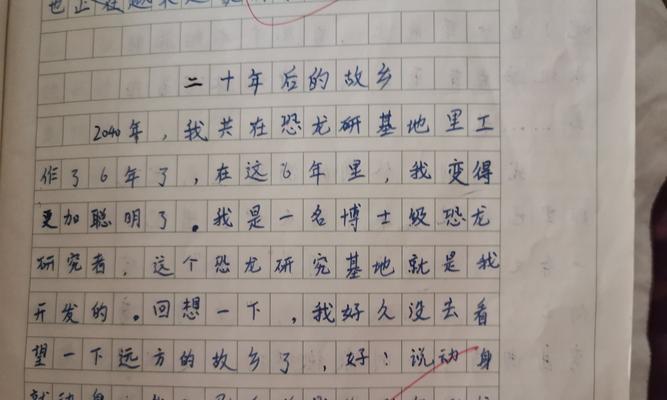 也正在越来越
二十年后的故乡
2040年，我共在恐龙研基地里工
作了6年了，在这6年里，我变得
更加聪明了。我是一名博士级恐龙
研究者，这个恐龙研究基地就是我
开发的。回想一下，我好久没去看
望一下远方的故乡了，好！说动身
就动身